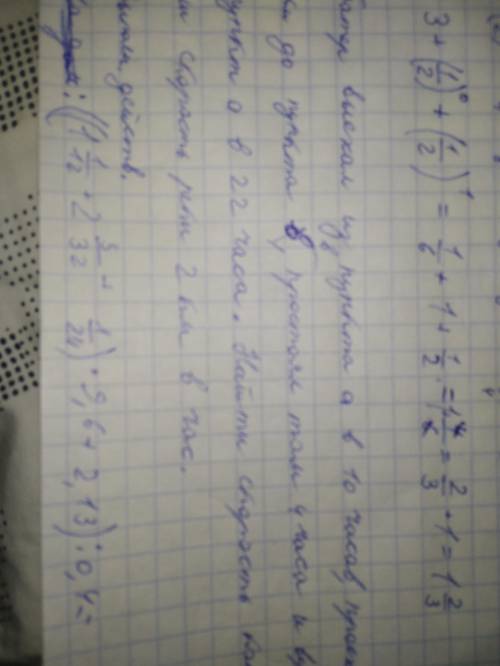 3 + (1/2)⁰ + (1/2)¹ = 1/6 + 1 + 1/2 = 1 4/6 = 2/3 + 1 = 1 2/3
выехал из пункта а в 10 часов,
до пункта в, простоял там 4 часа и
а в 22 часа. Найти скорость
скорость реки 2 км в час.
действ.
((1 1/12 + 2 5/32 + 1/24) · 9,6 + 2,13) : 0,4 =